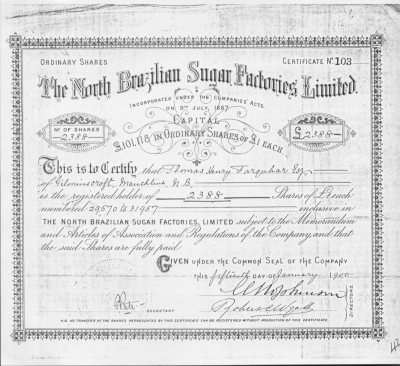 ORDINARY SHARES
CERTIFICATE No 103
The North Brazilian Sugar Factories Limited.
INCORPORATED UNDER THE COMPANIES' ACTS.
ON 9TH JULY, 1887.
CAPITAL
£101,118 IN ORDINARY SHARES OF £1 EACH
No OF SHARES
2388
£2388
This is to Certify that Thomas Henry Farquhar Esq
of Gilmilnscroft, Mauchline, N.B.
is the registered holder of 2388 Shares of £1 each
numbered 29570 to 31957 inclusive in
THE NORTH BRAZILIAN SUGAR FACTORIES, LIMITED subject to the Memorandum
and Articles of Association and Regulations of the Company, and that
the said Shares are fully paid
GIVEN UNDER THE COMMON SEAL OF THE COMPANY
THIS fifteenth DAY OF January 1900
DIRECTORS.
SECRETARY
N.B. NO TRANSFER OF THE SHARES REPRESENTED BY THIS CERTIFICATE CAN BE REGISTERED WITHOUT PRODUCTION OF THIS CERTIFICATE.